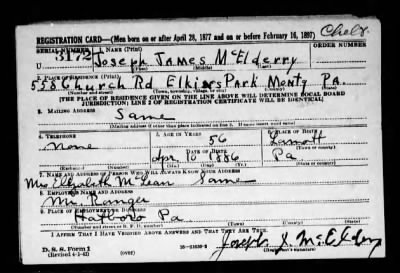 REGISTRATION CARD—(Men born on or after April 28, 1877 and on or before February 16, 1897)
SERIAL NUMBER 1. NAME (Print) ORDER NUMBER
U 3172 Joseph James McElderry
(First) (Middle) (Last)
2. PLACE OF RESIDENCE (Print)
558 Church Rd Elkins Park Montg Pa.
(Number and street) (Town, township, village, or city) (County) (State)
[THE PLACE OF RESIDENCE GIVEN ON THE LINE ABOVE WILL DETERMINE LOCAL BOARD
JURISDICTION; LINE 2 OF REGISTRATION CERTIFICATE WILL BE IDENTICAL]
3. MAILING ADDRESS
Same
[Mailing address if other than place indicated on line 2. If same insert word same]
4. TELEPHONE 5. AGE IN YEARS 6. PLACE OF BIRTH
None 56 Lamott
DATE OF BIRTH
Apr 10 1886 Pa
(Exchange) (Number) (Mo.) (Day) (Yr.) (State or country)
7. NAME AND ADDRESS OF PERSON WHO WILL ALWAYS KNOW YOUR ADDRESS
Mrs Elizabeth McLean Same
8. EMPLOYER'S NAME AND ADDRESS
Mr. Ranger
9. PLACE OF EMPLOYMENT OR BUSINESS
Hatboro Pa
(Number and street or R. F. D. number) (Town) (County) (State)
I AFFIRM THAT I HAVE VERIFIED ABOVE ANSWERS AND THAT THEY ARE TRUE.
D. S. S. Form 1
(Revised 4-1-42) (over)
Joseph J. McElderry
(Registrant's signature)